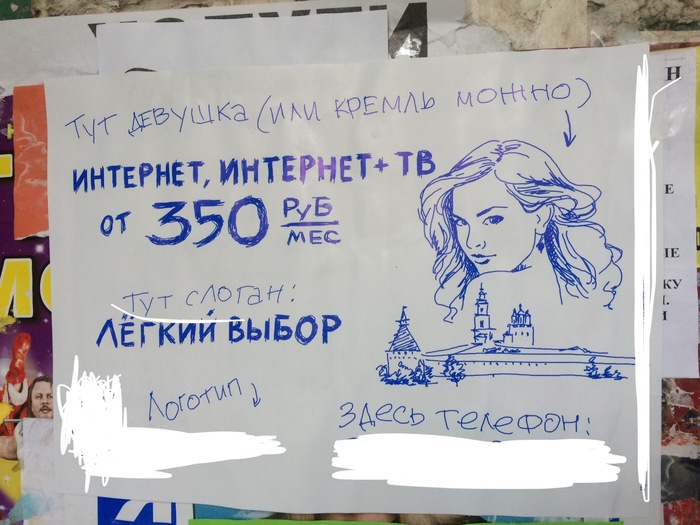 Тут девушка (или кремль можно)
ИНТЕРНЕТ, ИНТЕРНЕТ+ТВ
от 350 РУБ/МЕС
Тут слоган:
ЛЁГКИЙ ВЫБОР
Логотип
Здесь телефон: